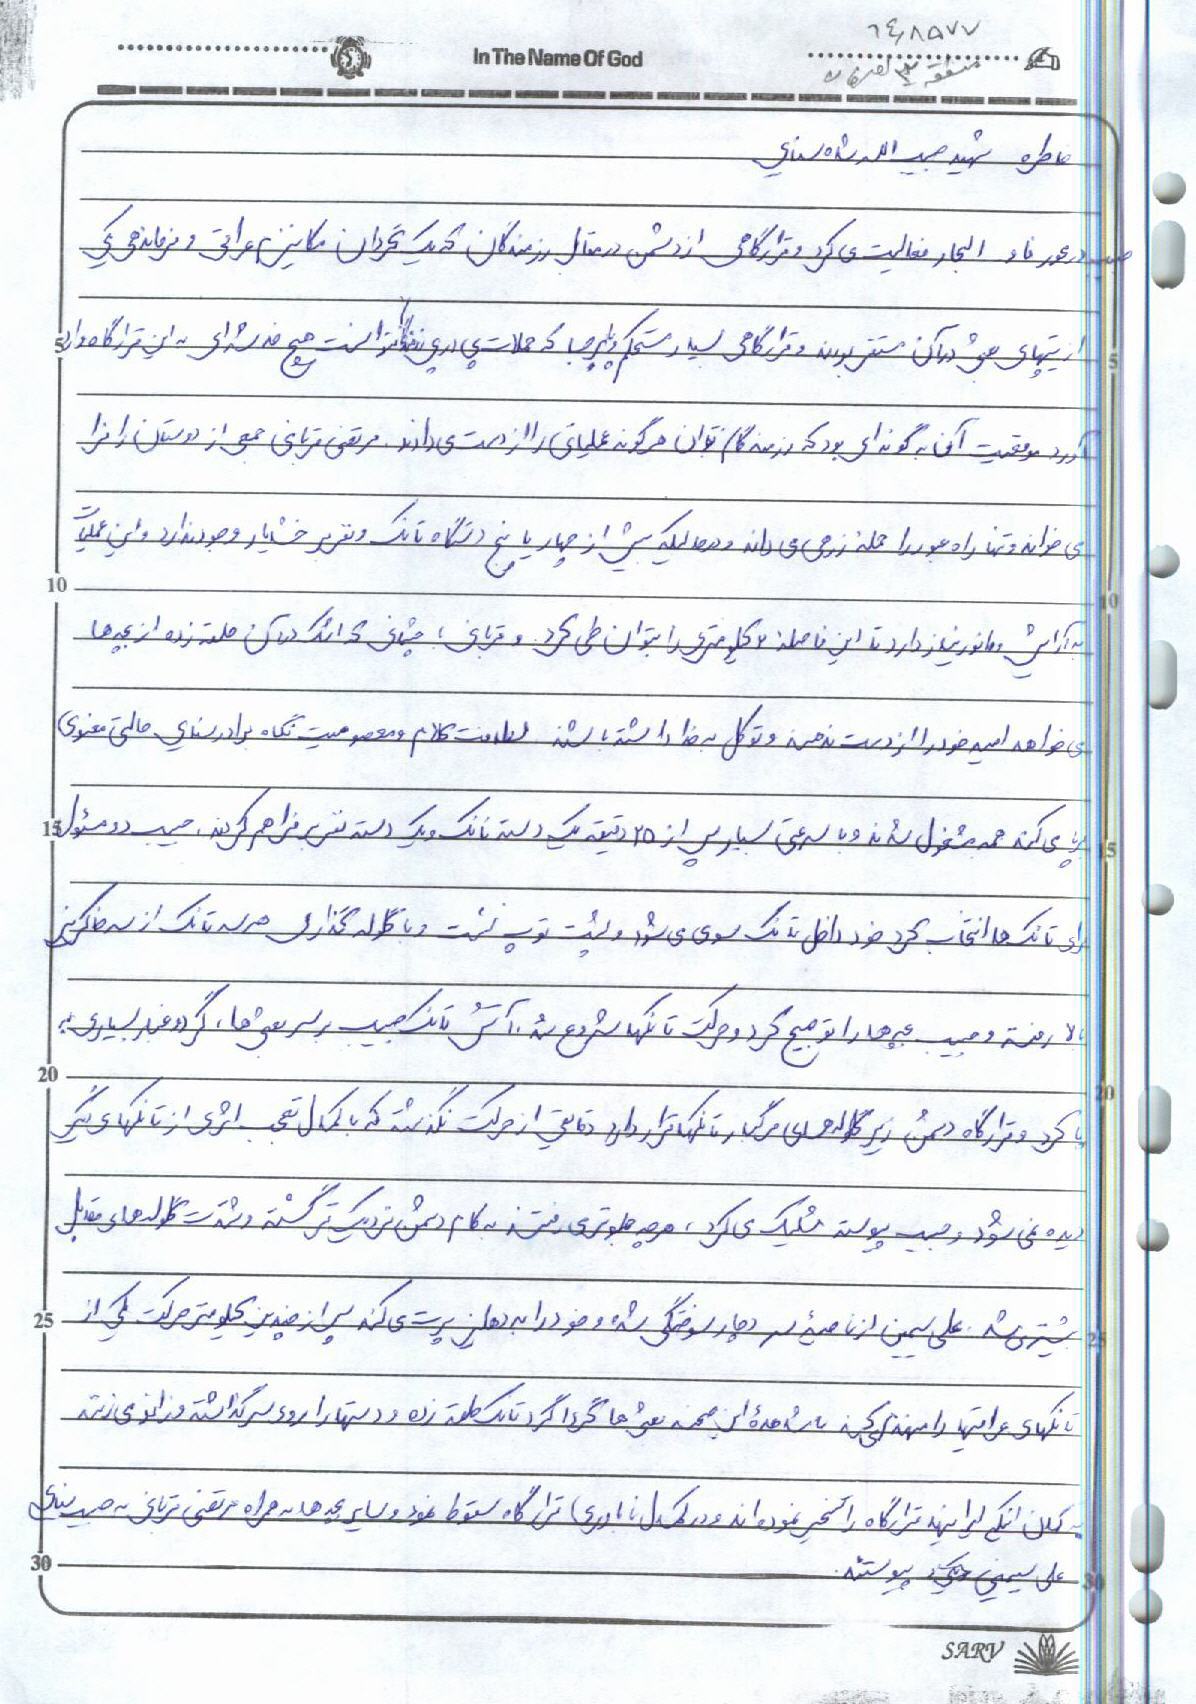 In The Name Of God
۶۴۸۵۷۷
منطقه ۳
خاطره شهید حبیب الله شاه سنائی
حبیب در محور فاو البحار فعالیت می کرد و قرارگاهی از دشمن در مقابل رزمندگان که یک گردان مکانیزم عراقی و فرماندهی یکی
از تیپهای بعثی در آن مستقر بودند و قرارگاهی بسیار مستحکم و پابرجا که حملات پی در پی نتوانست هیچ خدشه ای به این قرارگاه وارد
آورد موقعیت آن به گونه ای بود که رزمندگان توان هر گونه عملیاتی را از دست می دادند. مرتضی قربانی جمعی از دوستان را فرا
می خواند و تنها راه عبور را حمله زرهی می داند و درحالیکه بیش از چهار یا پنج دستگاه تانک و نفربر خشایار وجود ندارد و این عملیات
به آرایش و مانور نیاز دارد تا این فاصله ۷ کیلومتری را بتوان طی کرد. و قربانی با چشمانی که اشک در آن حلقه زده از بچه ها
می خواهد امید خود را از دست ندهند و توکل به خدا داشته باشند لطافت کلام و معصومیت نگاه برادر سنایی حالتی معنوی
برپا می کند همه مشغول شدند و با سرعتی بسیار پس از ۲۵ دقیقه یک دسته تانک و یک دسته نفربر فراهم کردند. حبیب دو مسئول
برای تانک ها انتخاب کرد خود داخل تانک سوی می شود و پشت توپ نشست و با گلوله گذاری هر سه تانک از سه خاکریز
بالا رفتند و حبیب بچه ها را توجیح کرد و حرکت تانکها شروع شد. آتش تانک حبیب بر سر بعثی ها، گرد و غبار بسیاری به
پا کرد و قرارگاه دشمن زیر گلوله های مرگبار تانکها قرار دارد دقایقی از حرکت نگذشته که با کمال تعجب اثری از تانکهای دیگر
دیده نمی شود و حبیب پیوسته شلیک می کرد، هرچه جلوتر می رفتند به کام دشمن نزدیک تر گشته و شدت گلوله های مقابل
بیشتر می شد. علی سیمین از ناحیه سر دچار سوختگی شده و خود را به دهلیز پرت می کند پس از چندین کیلومتر حرکت یکی از
تانکهای عراقیها را منهدم می کند با مشاهده این صحنه بعثی ها گرداگرد تانک حلقه زده و دستها را روی سر گذاشته و زانو می زنند
به گمان اینکه ایرانیها قرارگاه را تسخیر نموده اند و در کمال ناباوری قرارگاه سقوط نمود و سایر بچه ها به همراه مرتضی قربانی به حبیب سنایی
علی سیمینی پیوستند.
SARV